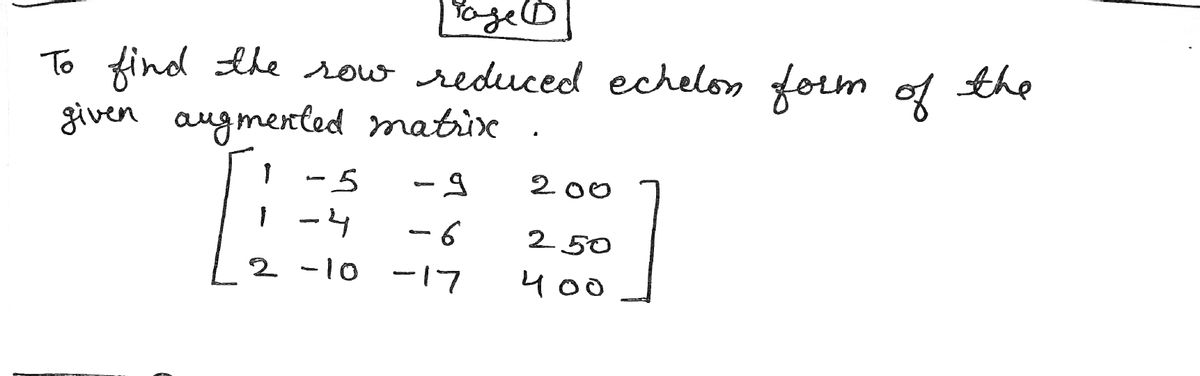 Page ①
To find the row reduced echelon form of the
given augmented matrix .
1 -5 -9 200
1 -4 -6 250
2 -10 -17 400